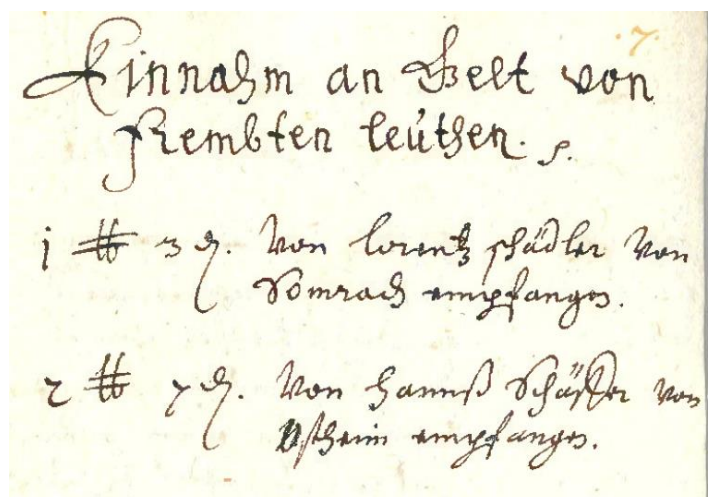 .7.
Einnahm an Gelt von
frembten leüthen.
1 ℔ 3 ₰. Von lorentz schädler Von
Somrach empfangen.
2 ℔ 7 ₰. Von Hannß Schäffer von
Ostheim empfangen.